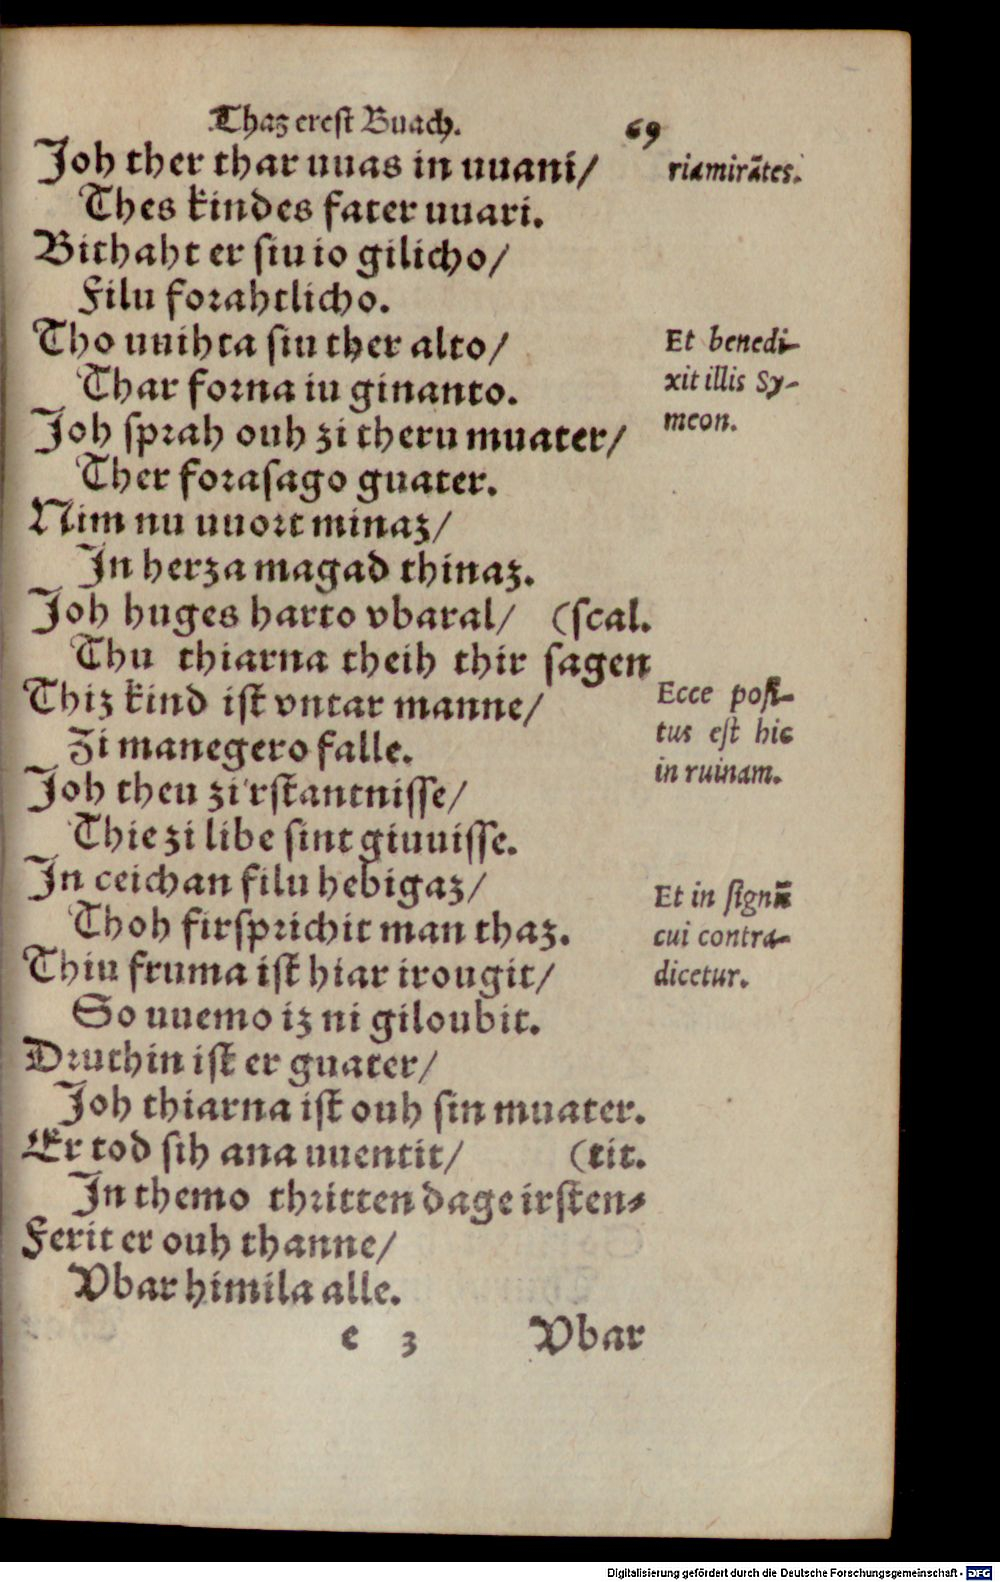 Thaz erest Buach. 69
Joh ther thar uuas in uuani/
Thes kindes fater uuari.
riamirātes.
Bithaht er siu io gilicho/
Filu forahtlicho.
Tho uuihta siu ther alto/
Thar forna iu ginanto.
Et benedi-
xit illis Sy-
meon.
Joh sprah ouh zi theru muater/
Ther forasago guater.
Nim nu uuort minaz/
In herza magad thinaz.
Joh huges harto vbaral/ (scal.
Thu thiarna theih thir sagen
Thiz kind ist vntar manne/
Zi manegero falle.
Ecce posi-
tus est hic
in ruinam.
Joh then zi'rstantnisse/
Thie zi libe sint giuuisse.
In ceichan filu hebigaz/
Thoh firsprichit man thaz.
Et in signū
cui contra-
dicetur.
Thiu fruma ist hiar irougit/
So uuemo iz ni giloubit.
Druthin ist er guater/
Joh thiarna ist ouh sin muater.
Er tod sih ana uuentit/ (tit.
In themo thritten dage irsten-
Ferit er ouh thanne/
Vbar himila alle.
e 3 Vbar
Digitalisierung gefördert durch die Deutsche Forschungsgemeinschaft - DFG